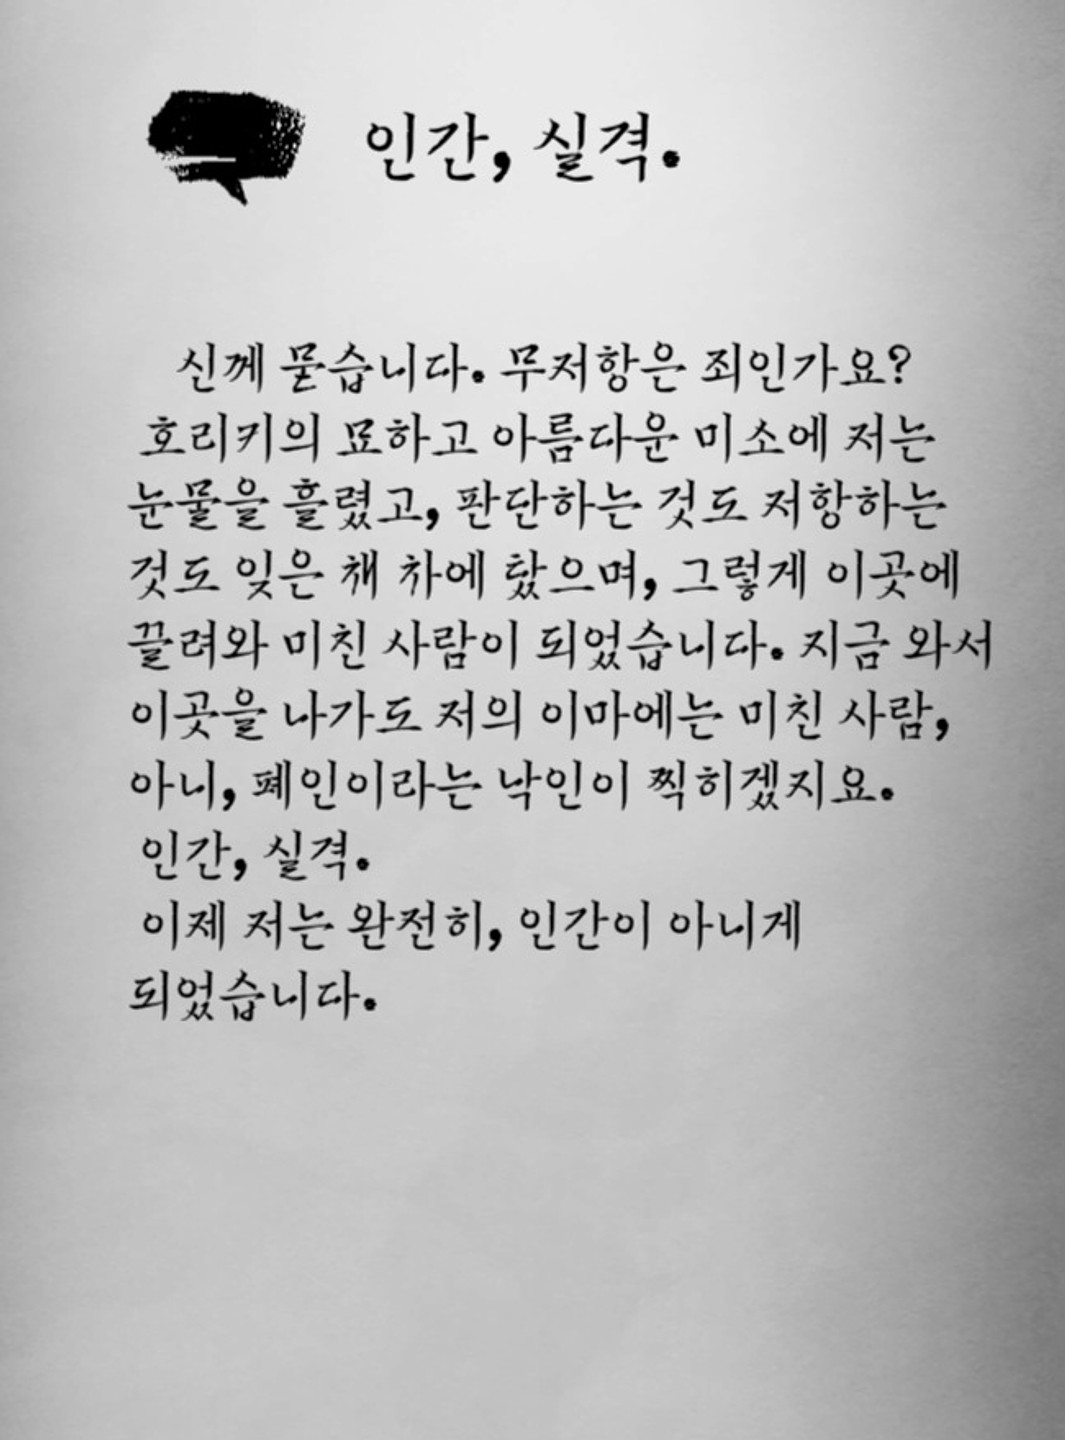 인간, 실격.
신께 묻습니다. 무저항은 죄인가요?
호리키의 묘하고 아름다운 미소에 저는
눈물을 흘렸고, 판단하는 것도 저항하는
것도 잊은 채 차에 탔으며, 그렇게 이곳에
끌려와 미친 사람이 되었습니다. 지금 와서
이곳을 나가도 저의 이마에는 미친 사람,
아니, 폐인이라는 낙인이 찍히겠지요.
인간, 실격.
이제 저는 완전히, 인간이 아니게
되었습니다.